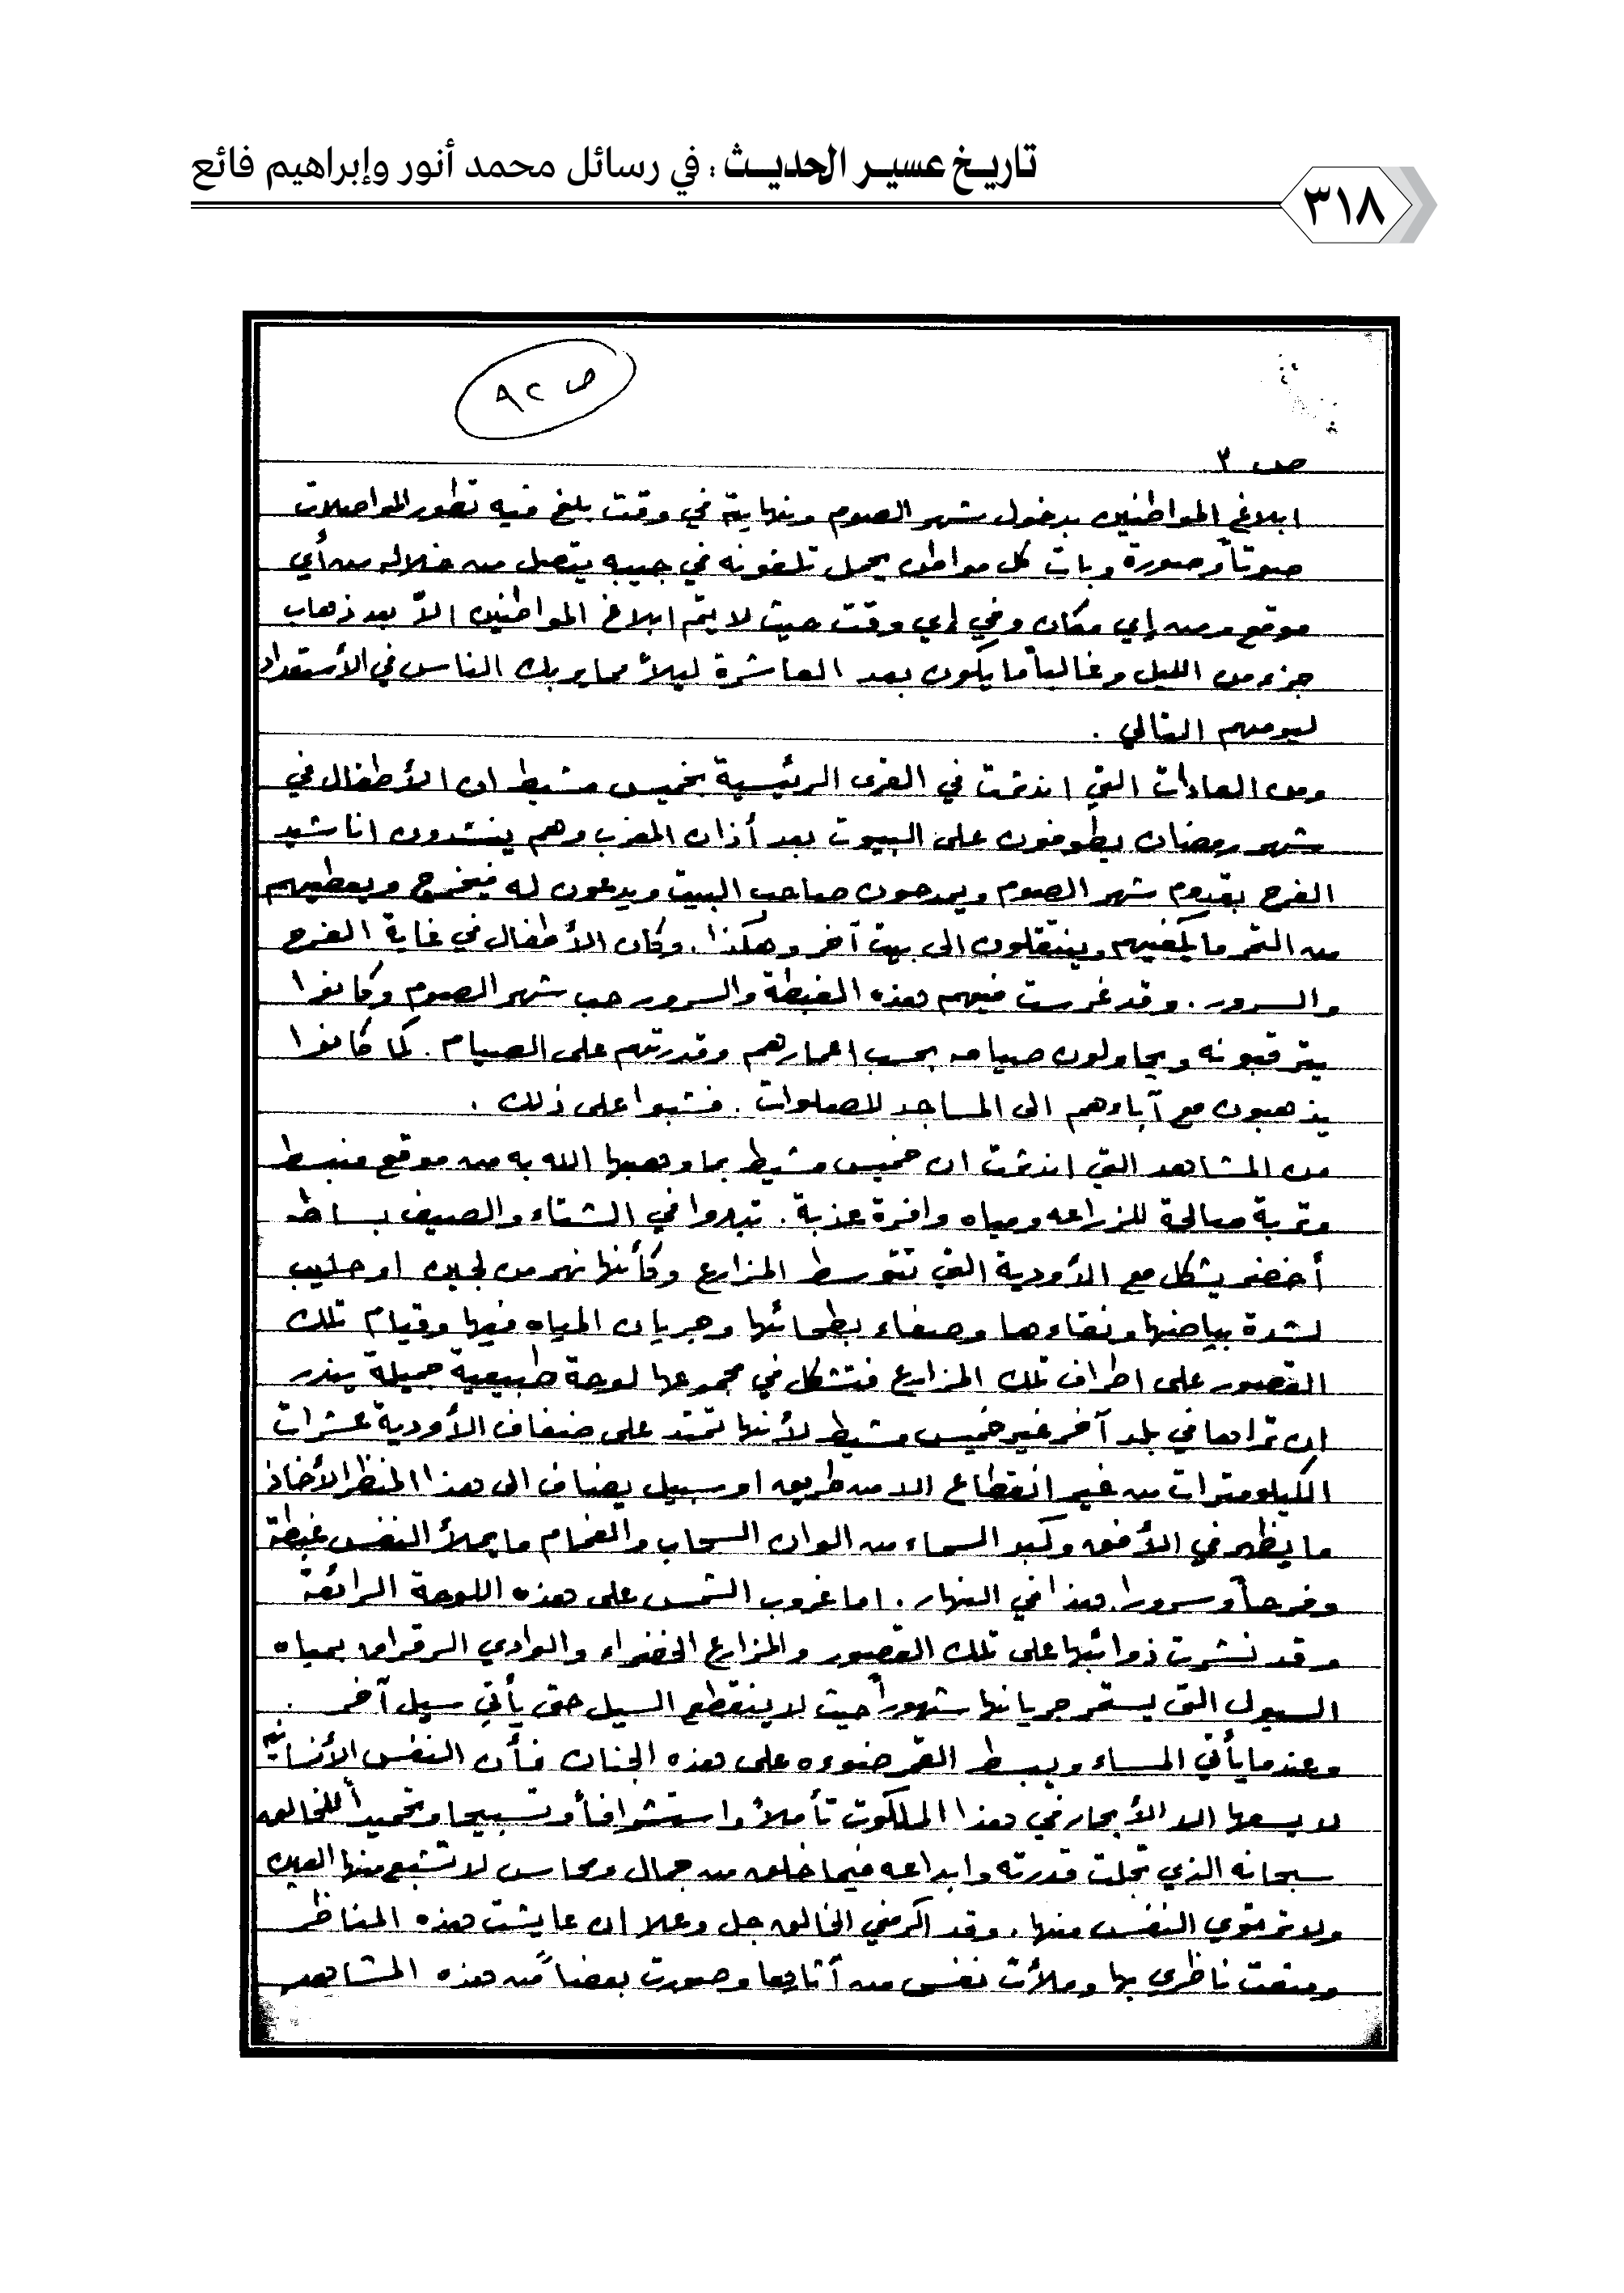 تاريخ عسير الحديث : في رسائل محمد أنور وإبراهيم فائع
٣١٨
ص ٩٢
ص ٣
ابلاغ المواطنين بدخول شهر الصوم ونهايته في وقت بلغ فيه تطور المواصلات
صوتاً وصورة وبات كل مواطن يحمل تلفونه في جيبه يتصل من خلاله من أي
موقع ومن إي مكان وفي إي وقت حيث لا يتم ابلاغ المواطنين الاّ بعد ذهاب
جزء من الليل وغالباً ما يكون بعد العاشرة ليلاً مما يربك الناس في الأستعداد
ليومهم التالي .
ومن العادات التي اندثرت في القرى الرئيسية بخميس مشيط ان الأطفال في
شهر رمضان يطوفون على البيوت بعد أذان المغرب وهم ينشدون اناشيد
الفرح بقدوم شهر الصوم ويمدحون صاحب البيت ويدعون له فيخرج ويعطيهم
من التمر ما يكفيهم وينتقلون الى بيت آخر وهكذا . وكان الأطفال في غاية الفرح
والسرور . وقد غرست فيهم هذه الغبطة والسرور حب شهر الصوم وكانوا
يترقبونه ويحاولون صيامه بحسب اعمارهم وقدرتهم على الصيام . كما كانوا
يذهبون مع آباءهم الى المساجد للصلوات . فشبوا على ذلك .
من المشاهد التي اندثرت ان خميس مشيط بما وهبها الله به من موقع منبسط
وتربة صالحة للزراعه ومياه وافرة عذبة . تبدوا في الشتاء والصيف بساطه
أخضر يشكل مع الأودية التي تتوسط المزارع وكأنها نهر من لجين او حليب
لشدة بياضها ونقاءها وصفاء بطحائها وجريان المياه فيها وقيام تلك
القصور على اطراف تلك المزارع فتشكل في مجموعها لوحة طبيعية جميلة يندر
ان تراها في بلد آخر غير خميس مشيط لأنها تمتد على ضفاف الأودية عشرات
الكيلومترات من غير انقطاع الا من طريق او سبيل يضاف الى هذا المنظر الأخاذ
ما يظهر في الأفق وكبد السماء من الوان السحاب والغمام ما يملأ النفس غبطة
وفرحاً وسرورا. هذا في النهار . اما غروب الشمس على هذه اللوحة الرائعة
وقد نشرت ذوائبها على تلك القصور والمزارع الخضراء والوادي الرقراق بمياه
السيول التي يستمر جريانها شهوراً حيث لا ينقطع السيل حتى يأتي سيل آخر .
وعندما يأتي المساء ويبسط القمر ضوءه على هذه الجنان فأن النفس الأنسانيه
لا يسعها الا الأبحار في هذا الملكوت تأملاً واستشرافاً وتسبيحا وتحميداً للخالق
سبحانه الذي تجلت قدرته وابداعه فيما خلق من جمال ومحاسن لا تشبع منها العين
ولا ترتوي النفس منها . وقد اكرمني الخالق جل وعلا ان عايشت هذه المناظر
ومتعت ناظري بها وملأت نفسي من آثارها وصورت بعضاً من هذه المشاهد